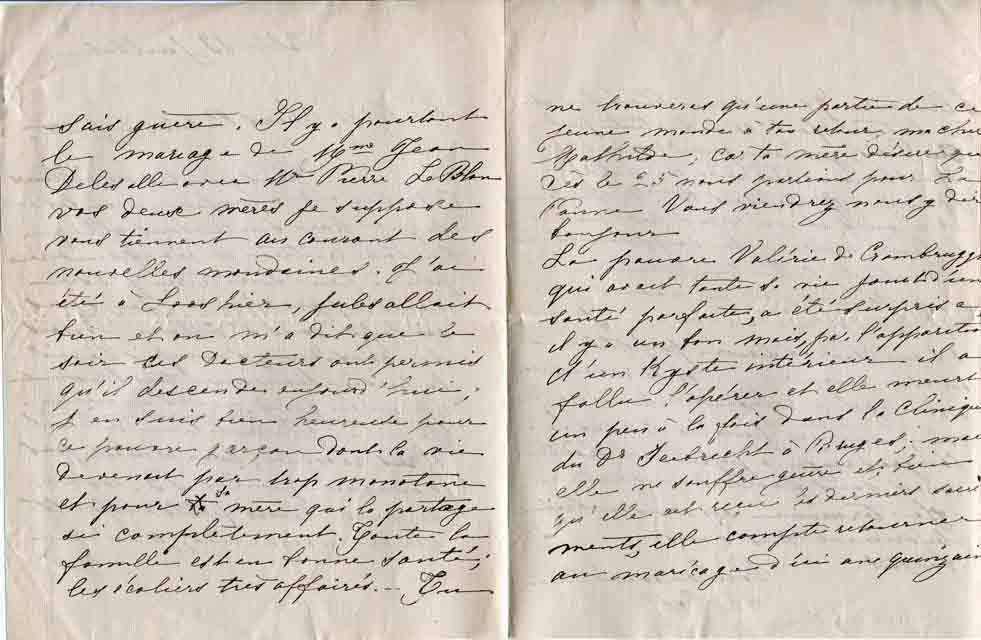 sais guère. Il y a pourtant
le mariage de Mme Jean
Delesalle avec Mr Pierre Le Blan
vos deux mères je suppose
vous tiennent au courant des
nouvelles mondaines. J'ai
été à Loos hier, Jules allait
bien et on m'a dit que le
soir les docteurs ont permis
qu'il descende aujourd'hui,
j'en suis bien heureuse pour
ce pauvre garçon dont la vie
devenait par trop monotone
et pour sa mère qui la partage
si complètement. Toute la
famille est en bonne santé;
les écoliers très affairés. - Tu
ne trouveras qu'une partie de ce
jeune monde à ton retour, ma chère
Mathilde, car ta mère désire que
dès le 25 nous partions pour La
Panne Vous viendrez nous y dire
bonjour
La pauvre Valérie de Crombrugghe
qui avait toute sa vie joui d'une
santé parfaite, a été surprise
il y a un bon mois, par l'apparition
d'un Kyste intérieur il a
fallu l'opérer et elle meurt
un peu à la fois dans la Clinique
du Dr à Bruges; mais
elle ne souffre guère et, bien
qu'elle ait reçu les derniers sacre
ments, elle compte retourner
au mariage d'ici une quinzaine